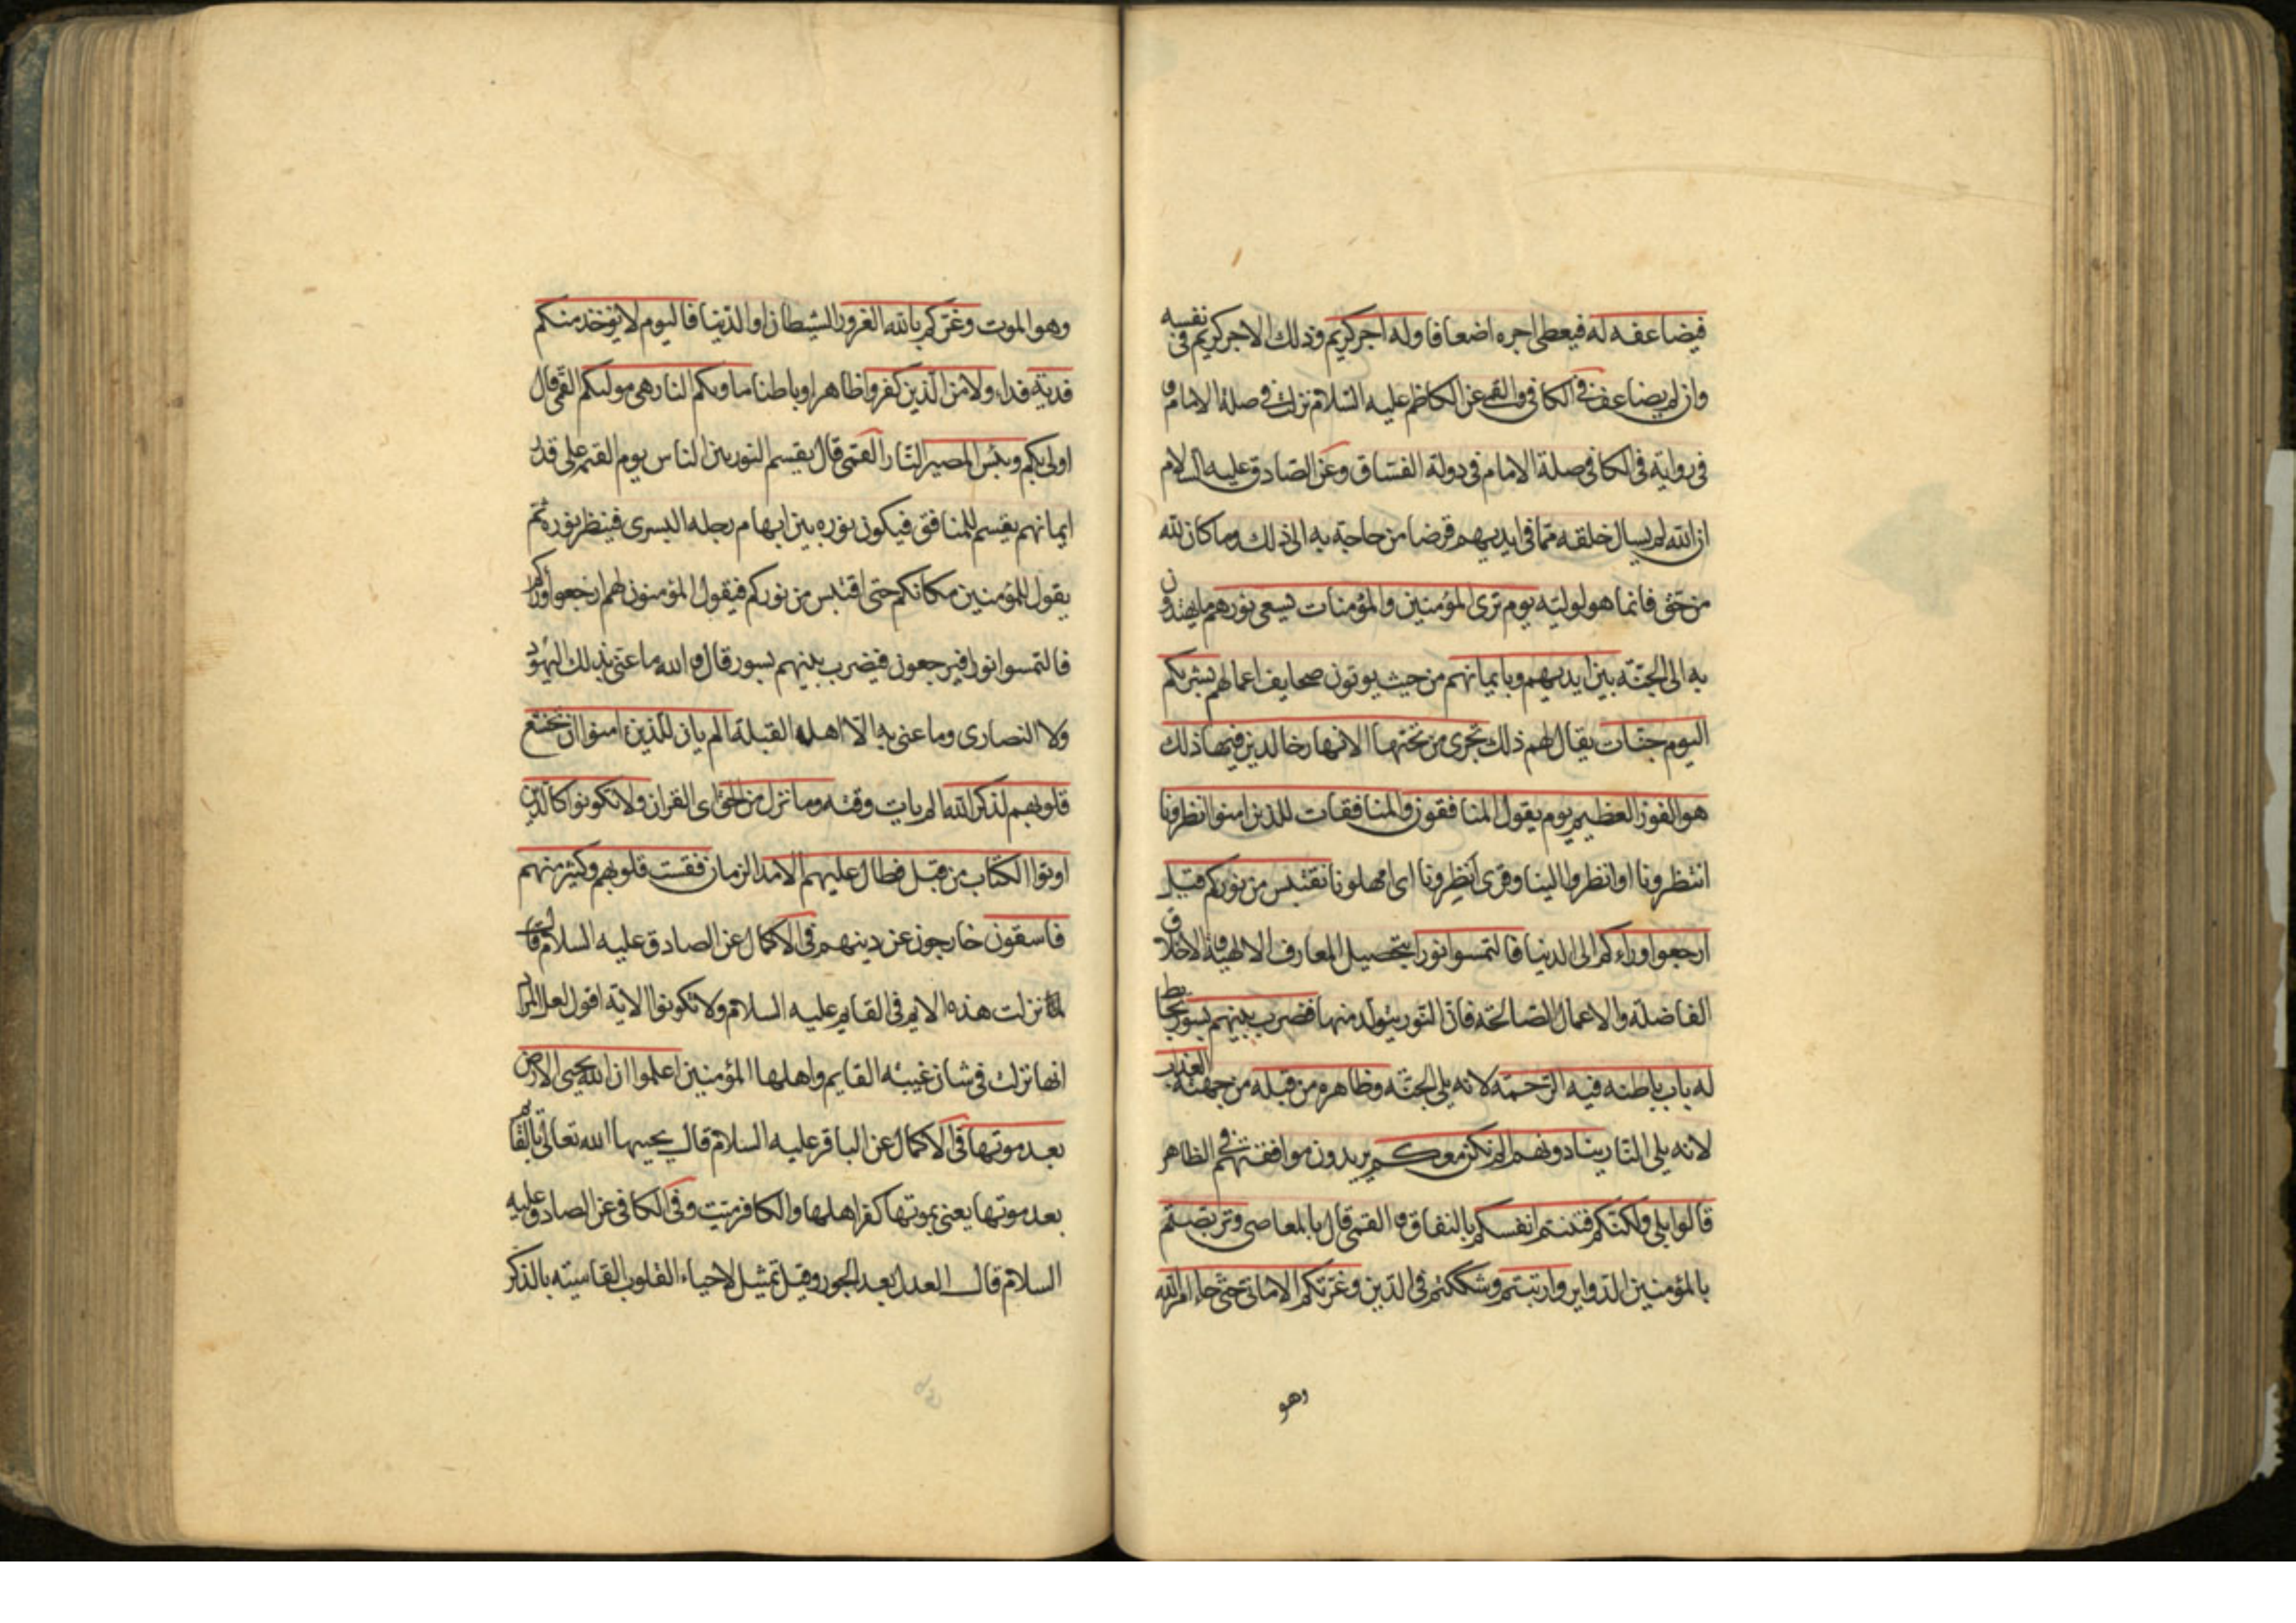 فيضاعفه له فيعطى اجره اضعافا وله اجر كريم وذلك الاجر كريم فى نفسه
وان لم يضاعف فى الكافى والقمى عن الكاظم عليه السلام نزلت فى صلة الامام و
فى رواية فى الكافى صلة الامام فى دولة الفساق وعن الصادق عليه السلام
ان الله لم يسال خلقه مما فى ايديهم قرضا من حاجة به الى ذلك وما كان لله
من حق فانما هو لوليه يوم ترى المؤمنين والمؤمنات يسعى نورهم ما يهتدون
به الى الجنة بين ايديهم وبايمانهم من حيث يوتون صحايف اعمالهم بشريكم
اليوم جنات يقال لهم ذلك تجرى من تحتها الانهار خالدين فيها ذلك
هو الفوز العظيم يوم يقول المنافقون والمنافقات للذين امنوا انظرونا
انتظرونا او انظروا الينا وقرى انظرونا اى امهلونا نقتبس من نوركم قيل
ارجعوا وراءكم الى الدنيا فالتمسوا نورا بتحصيل المعارف الالهية والاخلاق
الفاضلة والاعمال الصالحة فان النور يتولد منها فضرب بينهم بسور بحايط
له باب باطنه فيه الرحمة لانه يلى الجنة وظاهره من قبله من جهته العذاب
لانه يلى النار ينادونهم الم نكن معكم يريدون موافقتهم فى الظاهر
قالوا بلى ولكنكم فتنتم انفسكم بالنفاق و القمى قال بالمعاصى وتربصتم
بالمؤمنين الدواير وارتبتم وشككتم فى الدين وغرتكم الامانى حتى جاء امر الله
وهو
وهو الموت وغركم بالله الغرور الشيطان او الدنيا فاليوم لا يؤخذ منكم
فدية فداء ولا من الذين كفروا ظاهرا وباطنا ماويكم النار هى موليكم القمى قال
اولى بكم وبئس المصير النار القمى قال يقسم النور بين الناس يوم القيمة على قدر
ايمانهم يقسم للمنافق فيكون نوره بين ابهام رجله اليسرى فينظر نوره ثم
يقول للمؤمنين مكانكم حتى اقتبس من نوركم فيقول المؤمنون لهم ارجعوا وراءكم
فالتمسوا نورا فيرجعون فيضرب بينهم بسور قال والله ما عنى بذلك اليهود
ولا النصارى وما عنى به الا اهل القبلة الم يان للذين امنوا ان تخشع
قلوبهم لذكر الله الم يات وقته وما نزل من الحق اى القران ولا تكونوا كالذين
اوتوا الكتاب من قبل فطال عليهم الامد الزمان فقست قلوبهم وكثير منهم
فاسقون خارجون عن دينهم فى الاكمال عن الصادق عليه السلام قال
نزلت هذه الاية فى القايم عليه السلام ولا تكونوا الاية اقول لعل المراد
انها نزلت فى شان غيبة القايم واهلها المؤمنين اعلموا ان الله يحيى الارض
بعد موتها فى الاكمال عن الباقر عليه السلام قال يحييها الله تعالى بالقايم
بعد موتها يعنى بموتها كفر اهلها والكافر ميت وفى الكافى عن الصادق عليه
السلام قال العدل بعد الجور وقيل تمثيل لاحياء القلوب القاسية بالذكر